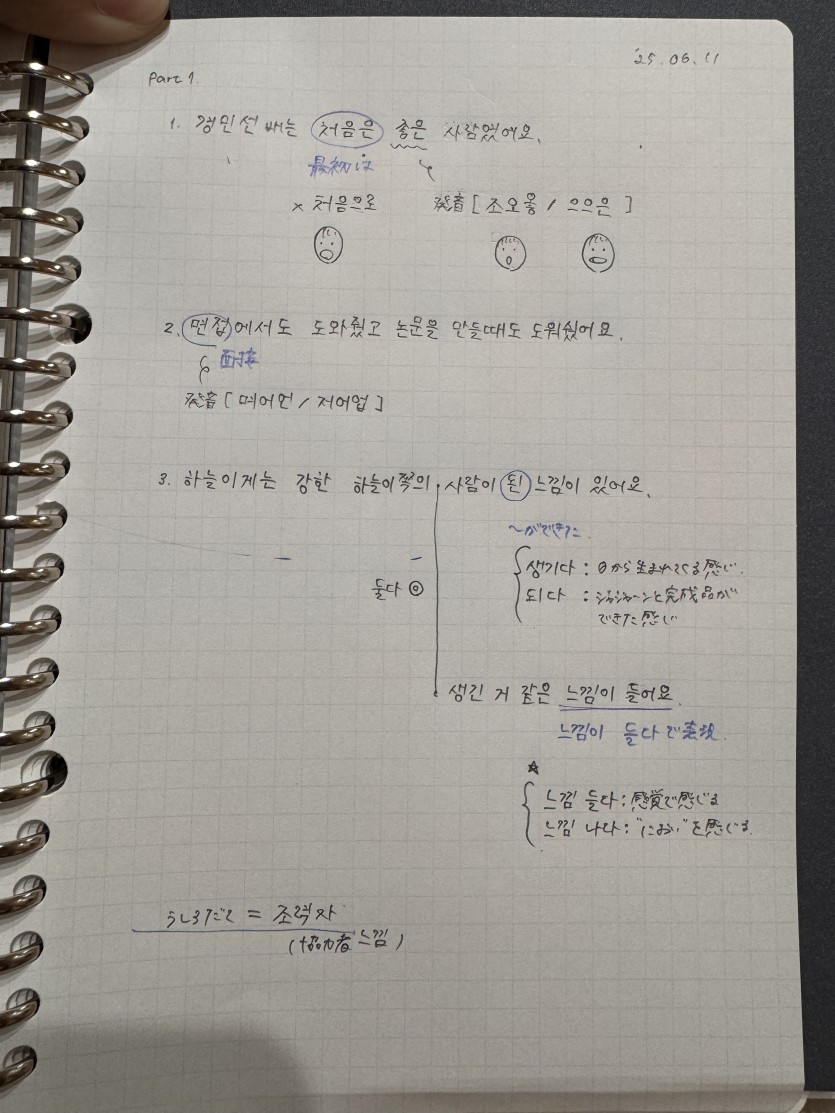 '25.06.11
Part 1.
1. 경민선배는 처음은 좋은 사람였어요.
最初は
× 처음으로 発音 [ 조오옿 / 으으은 ]
2. 면접에서도 도와줬고 논문을 만들때도 도워줬어요.
面接
発音 [ 며어언 / 저어업 ]
3. 하늘이게는 강한 하늘이쪽의 사람이 된 느낌이 있어요.
〜ができた.
생기다 : 0から生まれてくる感じ.
둘다 ◎ 되다 : ジャジャーンと完成品が
できた感じ
생긴 거 같은 느낌이 들어요.
느낌이 들다で表現.
☆
느낌 들다 : 感覚で感じる
느낌 나다 : "におい"を感じる.
うしろだて = 조력자
(協力者 느낌)